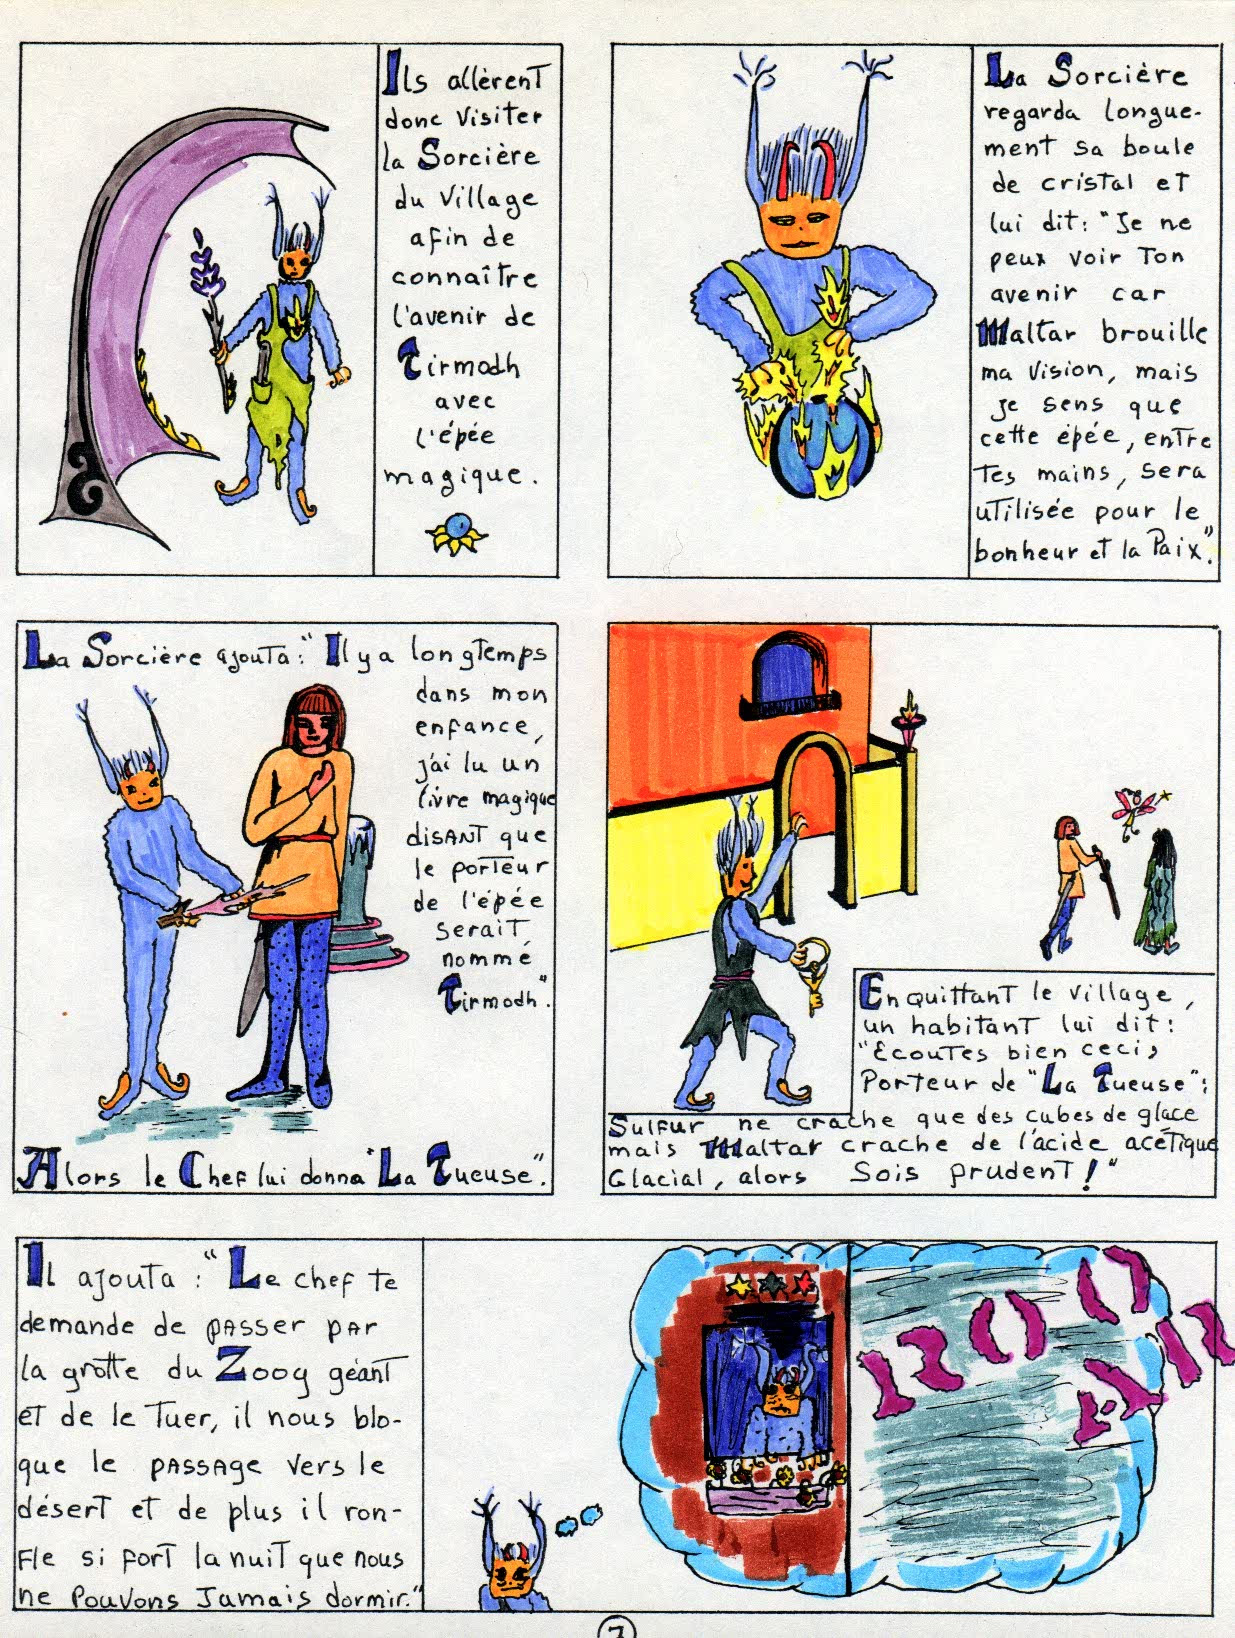 Ils allèrent
donc visiter
la Sorcière
du village
afin de
connaître
l'avenir de
Tirmodh
avec
l'épée
magique.
La Sorcière
regarda longue-
ment sa boule
de cristal et
lui dit: "Je ne
peux voir ton
avenir car
Maltar brouille
ma vision, mais
je sens que
cette épée, entre
tes mains, sera
utilisée pour le
bonheur et la Paix".
La Sorcière ajouta: "Il y a longtemps
dans mon
enfance,
j'ai lu un
livre magique
disant que
le porteur
de l'épée
serait
nommé
Tirmodh".
Alors le Chef lui donna "La Tueuse".
En quittant le village,
un habitant lui dit:
"Ecoutes bien ceci,
Porteur de "La Tueuse":
Sulfur ne crache que des cubes de glace
mais Maltar crache de l'acide acétique
Glacial, alors Sois prudent!"
Il ajouta: "Le chef te
demande de passer par
la grotte du Zoog géant
et de le tuer, il nous blo-
que le passage vers le
désert et de plus il ron-
fle si fort la nuit que nous
ne pouvons Jamais dormir."
7